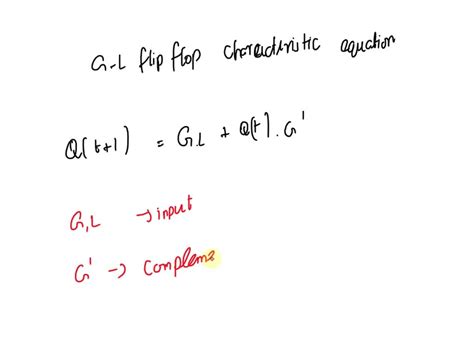 G-L flip flop characteristic equation
Q(t+1) = G.L + Q(t).G'
G,L → input
G' → complema